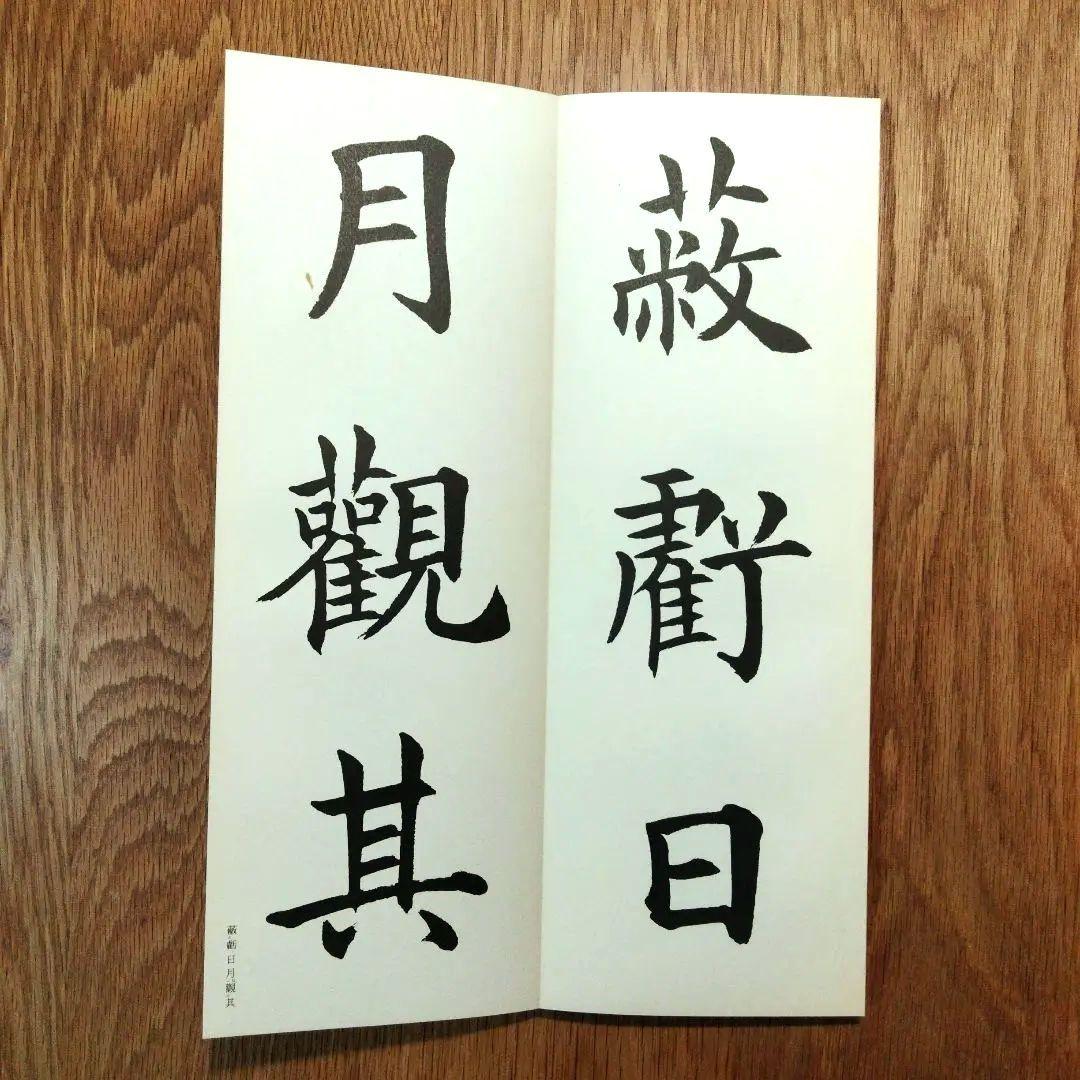 蔽虧日
月觀其
蔽虧日月觀其